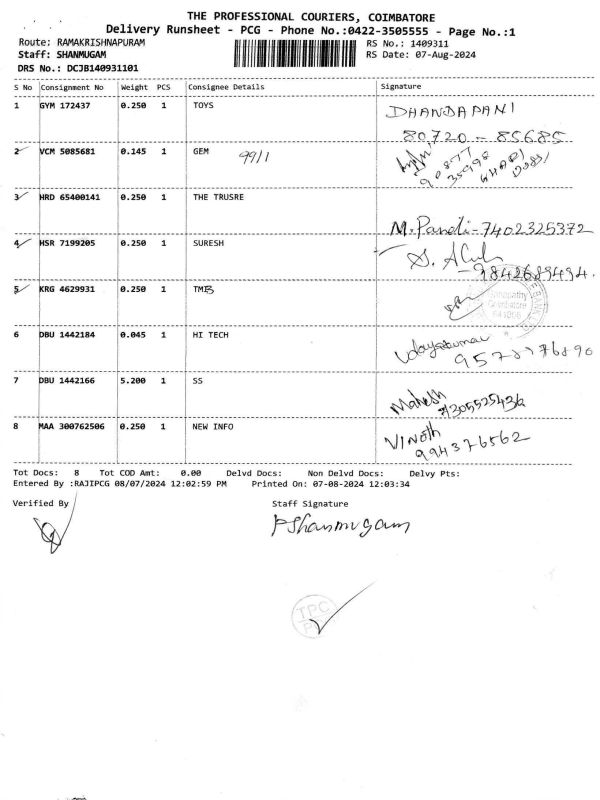 THE PROFESSIONAL COURIERS, COIMBATORE
Delivery Runsheet - PCG - Phone No.:0422-3505555 - Page No.:1
Route: RAMAKRISHNAPURAM RS No.: 1409311
Staff: SHANMUGAM RS Date: 07-Aug-2024
DRS No.: DCJB140931101
S No Consignment No Weight PCS Consignee Details Signature
1 GYM 172437 0.250 1 TOYS DHANDAPANI
80720 - 85685
2 VCM 5085681 0.145 1 GEM 99/1
90877
35998
3 HRD 65400141 0.250 1 THE TRUSRE
M. Pandi - 7402325372
4 HSR 7199205 0.250 1 SURESH
- 9842689494.
5 KRG 4629931 0.250 1 TMB
Coimbatore
6 DBU 1442184 0.045 1 HI TECH Udayakumar
7 DBU 1442166 5.200 1 SS Mahesh
7305525436
8 MAA 300762506 0.250 1 NEW INFO VINOTH
994376562
Tot Docs: 8 Tot COD Amt: 0.00 Delvd Docs: Non Delvd Docs: Delvy Pts:
Entered By :RAJIPCG 08/07/2024 12:02:59 PM Printed On: 07-08-2024 12:03:34
Verified By Staff Signature
P Shanmugam
TPC